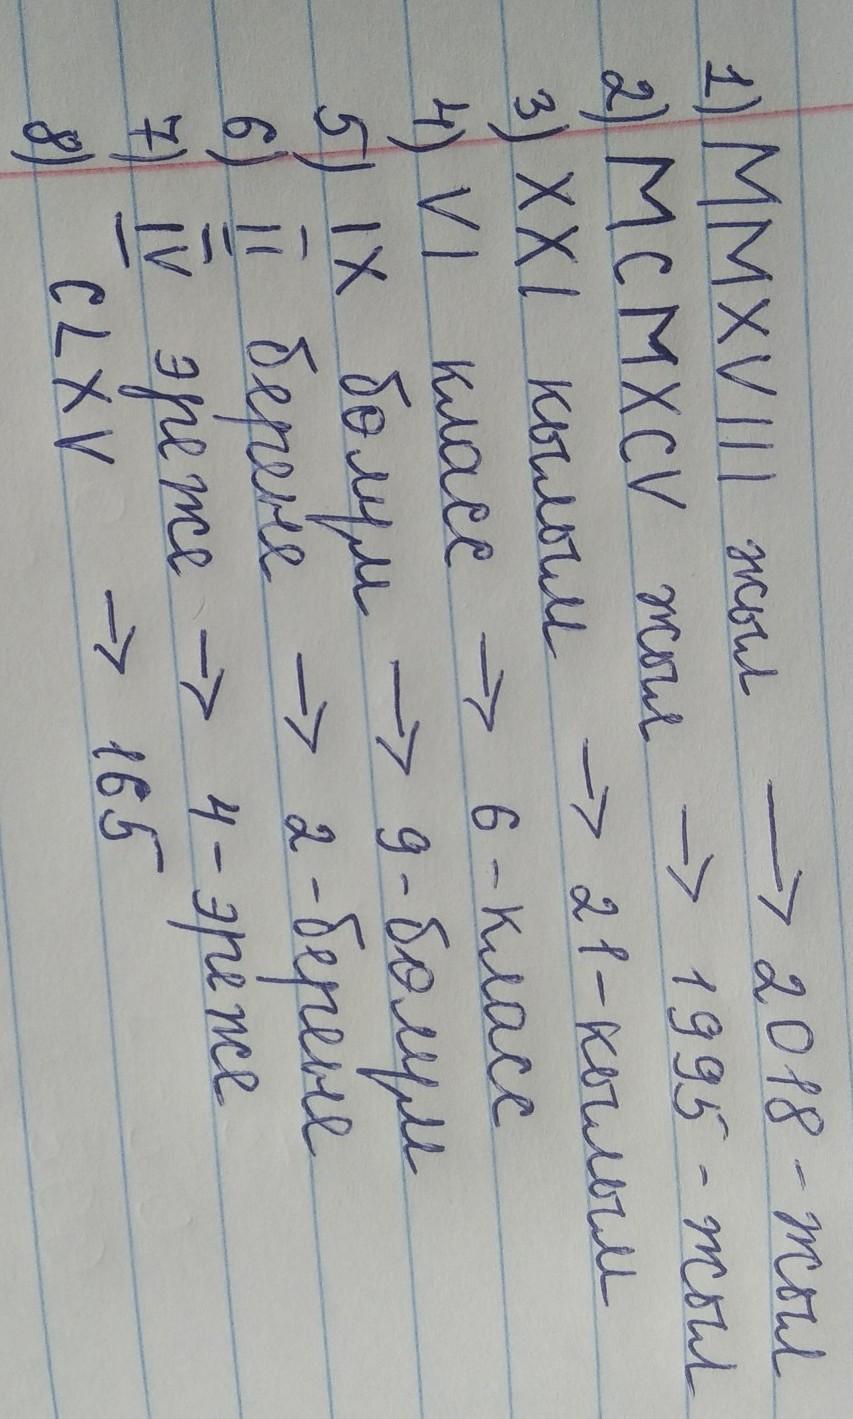 1) MMXVIII жыл → 2018-жыл
2) MCMXCV жыл → 1995-жыл
3) XXI кылым → 21-кылым
4) VI класс → 6-класс
5) IX болум → 9-болум
6) II берене → 2-берене
7) IV эреже → 4-эреже
8) CLXV → 165